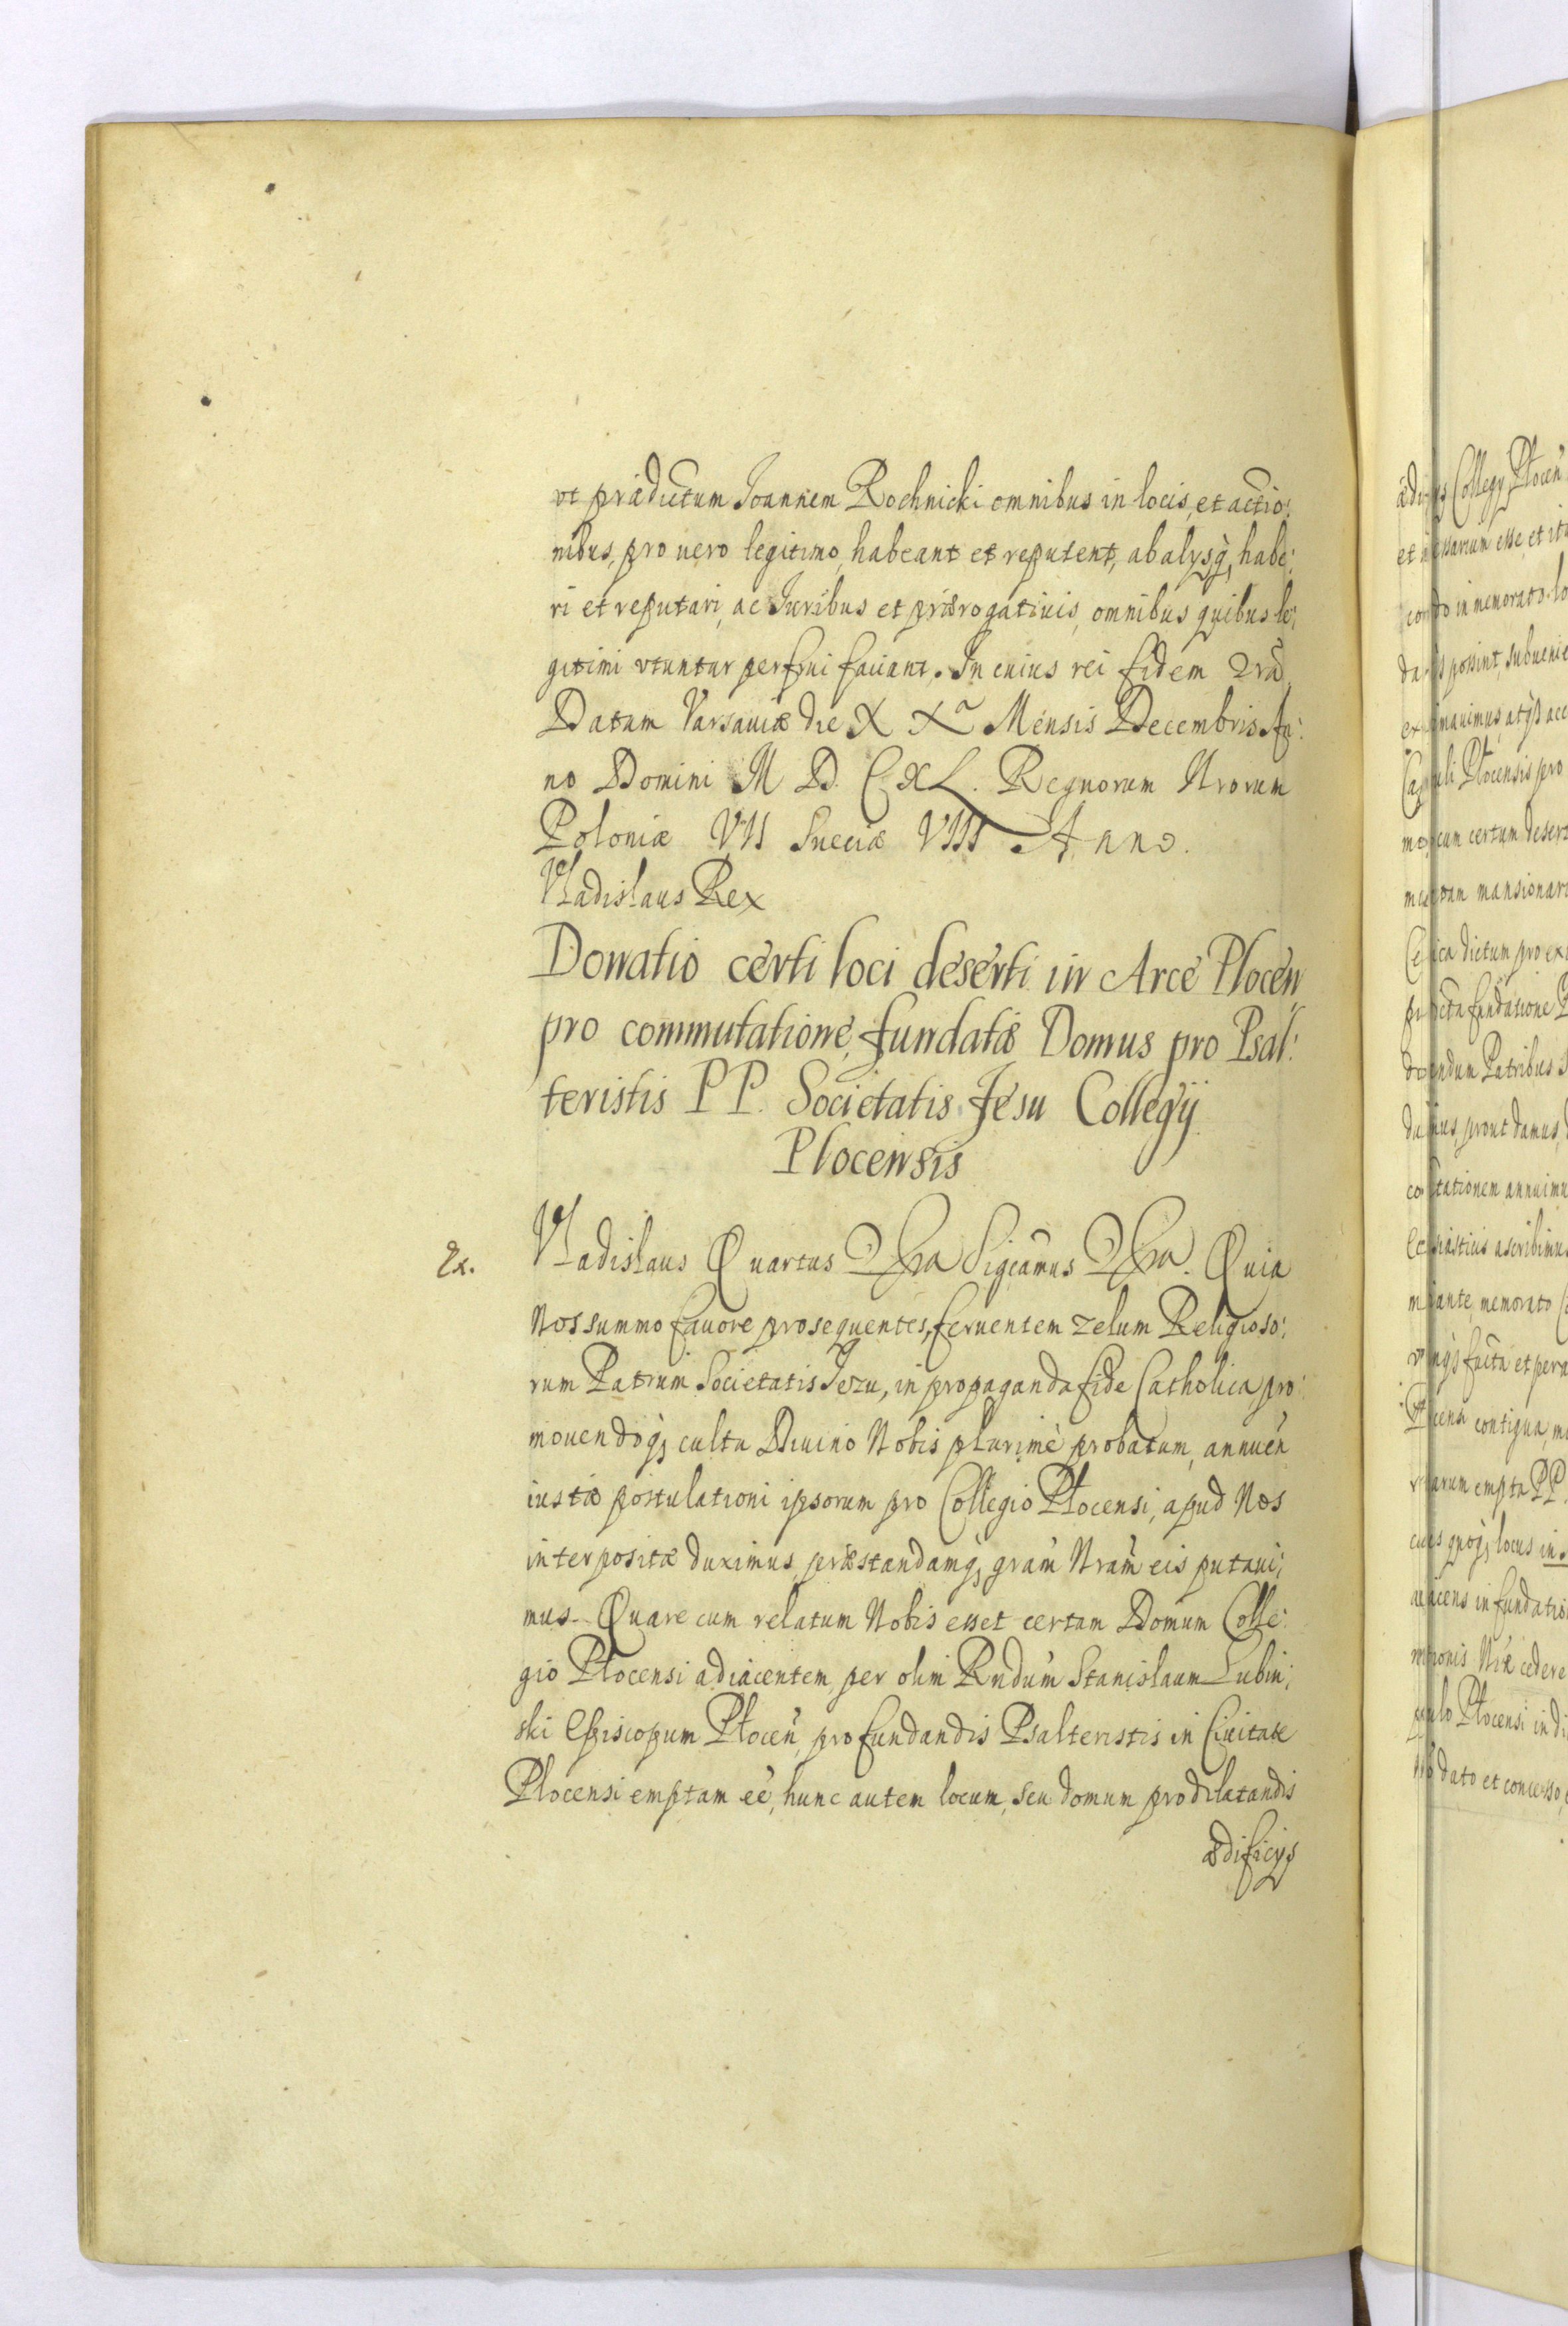 vt prædictum Joannem Rochnicki omnibus in locis, et actio:
nibus, pro uero legitimo, habeant et reputent, ab alysq3 habe:
ri et reputari, ac Juribus et prærogatiuis, omnibus quibus le:
gitimi vtuntur perfrui faciant. In cuius rei fidem
Datum Varsauiæ die X Xa Mensis Decembris An:
no Domini M D. C XL. Regnorum Nrorum
Poloniæ VII Sueciæ VIII Anno.
Vladislaus Rex
Donatio certi loci deserti in Arce Plocen
pro commutatione, fundatæ Domus pro Psal:
teristis P P. Societatis Jesu Collegij
Plocensis
Vladislaus Quartus Sigcamus Quia
Nos summo fauore prosequentes, feruentem zelum Religioso:
rum Patrum Societatis Jezu, in propaganda fide Catholica pro:
mouendoq3 cultu Diuino Nobis plurimè probatum, annuen̄
iustæ postulationi ipsorum pro Collegio Płocensi, apud Nos
interpositæ duximus, præstandamq3 gram̄ Nram̄ eis putaui:
mus. Quare cum relatum Nobis esset certam Domum Colle:
gio Płocensi adiacentem, per olim Rndum̄ Stanislaum Lubin:
ski Episcopum Płocen̄, pro fundandis Psalteristis in Ciuitate
Plocensi emptam eē, hunc autem locum, seu domum pro dilatandis
ædificijs
Collegy Płocen
esse, et ita
in memorato lo
possint, subuenie
Płocensis pro
certum desert
mansionari
dictum pro ex
fundatione
Patribus
prout damus,
annuimus
ascribimus
memorato
facta et pera
contigua,
empta PP.
quoq3 locus in
in fundatio
cedere
Płocensi in di
dato et concesso,